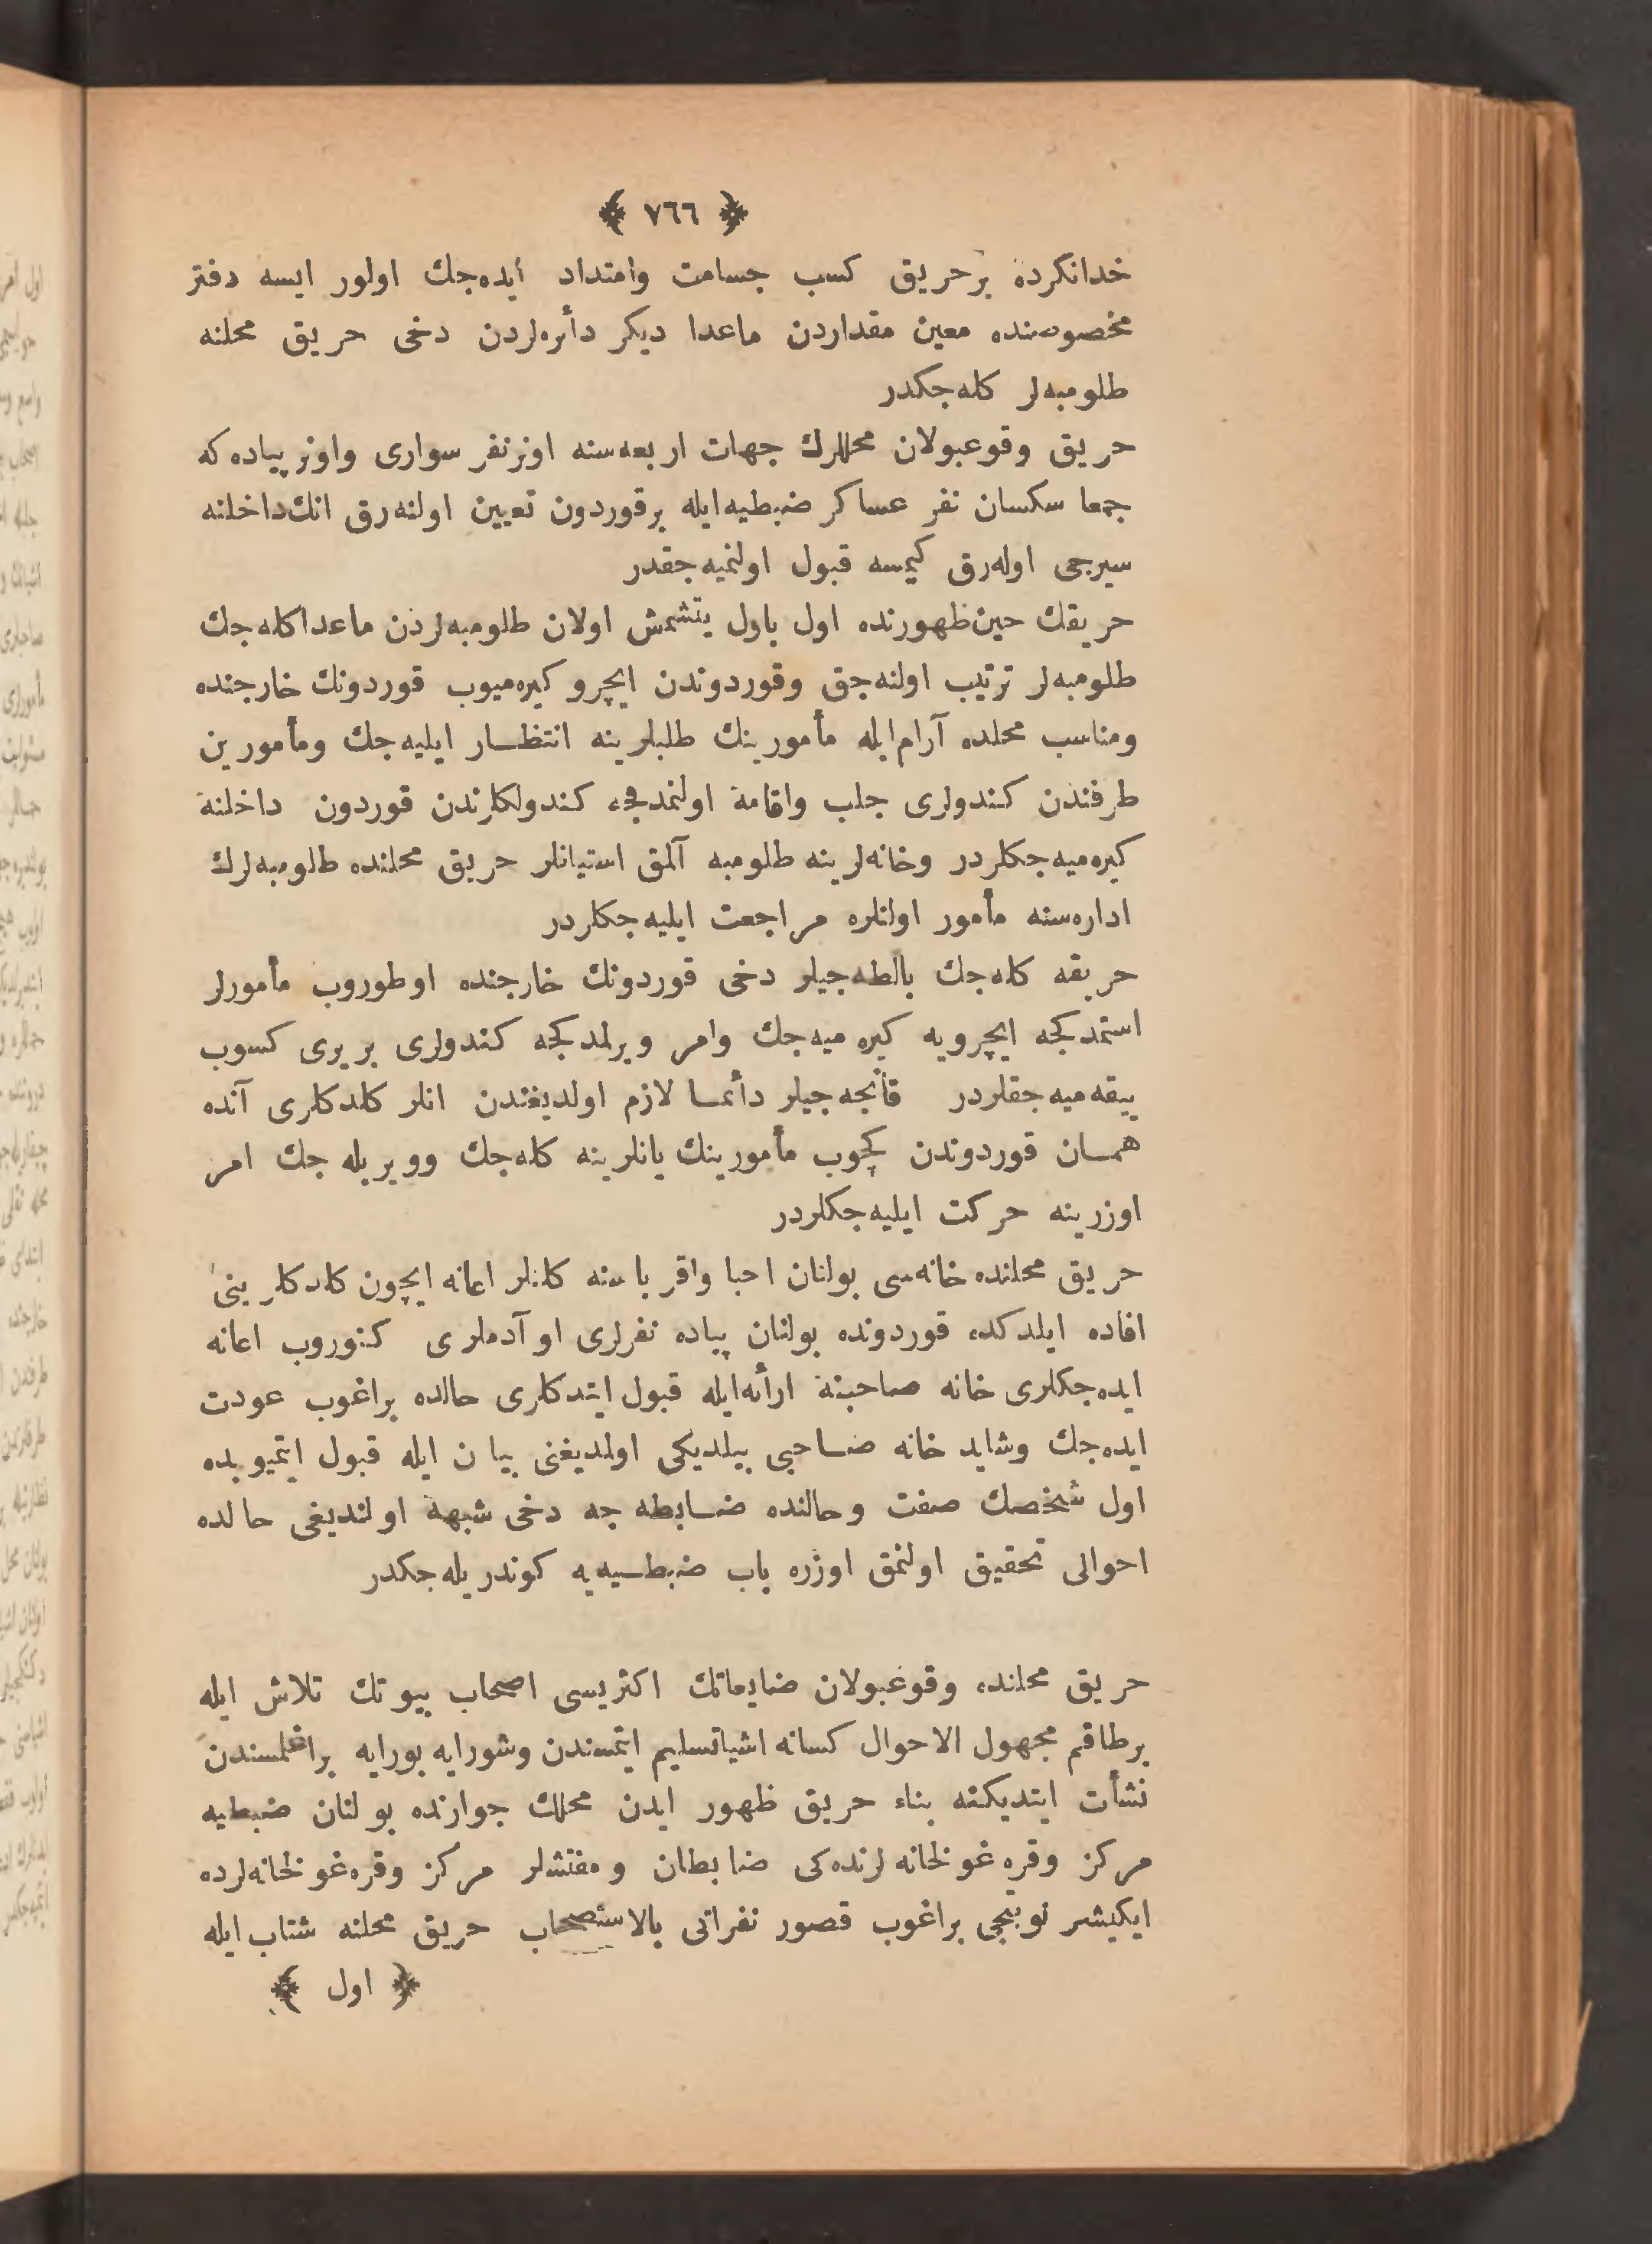 ﴿ ٧٦٦ ﴾
خدانكرده برحريق كسب جسامت وامتداد ايده‌جك اولور ايسه دفتر
مخصوصنده معين مقداردن ماعدا ديكر دأره‌لردن دخى حريق محلنه
طلومبه‌لر كله‌جكدر
حريق وقوعبولان محللرك جهات اربعه‌سنه اونرنفر سوارى واونر پياده‌كه
جمعا سكسان نفر عساكر ضبطيه‌ايله برقوردون تعيين اولنه‌رق انك‌داخلنه
سيرجى اوله‌رق كيمسه قبول اولنميه‌جقدر
حريقك حين‌ظهورنده اول باول يتشمش اولان طلومبه‌لردن ماعدا كله‌جك
طلومبه‌لر ترتيب اولنه‌جق وقوردوندن ايچرو كيره‌ميوب قوردونك خارجنده
ومناسب محلده آرام‌ايله مأمورينك طلبلرينه انتظار ايليه‌جك ومأمورين
طرفندن كندولرى جلب واقامه اولنمدقجه كندولكلرندن قوردون داخلنه
كيره‌ميه‌جكلردر وخانه‌لرينه طلومبه آلمق استيانلر حريق محلنده طلومبه‌لرك
اداره‌سنه مأمور اولنلره مراجعت ايليه‌جكلردر
حريقه كله‌جك بالطه‌جيلر دخى قوردونك خارجنده اوطوروب مأمورلر
استمدكجه ايچرويه كيره ميه‌جك وامر ويرلمدكجه كندولرى بريرى كسوب
ييقه‌ميه‌جقلردر قانجه‌جيلر دأئما لازم اولديغندن انلر كلدكلرى آنده
همان قوردوندن كچوب مأمورينك يانلرينه كله‌جك وويريله جك امر
اوزرينه حركت ايليه‌جكلردر
حريق محلنده خانه‌سى بولنان احبا واقرباسنه كلنلر اعانه ايچون كلدكلرينى
افاده ايلدكده قوردونده بولنان پياده نفرلرى او آدملرى كتوروب اعانه
ايده‌جكلرى خانه صاحبنه ارأئه‌ايله قبول ايتدكلرى حالده براغوب عودت
ايده‌جك وشايد خانه صاحبى بيلديكى اولمديغنى بيان ايله قبول ايتميوبده
اول شخصك صفت وحالنده ضابطه جه دخى شبهه اولنديغى حالده
احوالى تحقيق اولنمق اوزره باب ضبطيه‌يه كوندريله‌جكدر
حريق محلنده وقوعبولان ضايعاتك اكثريسى اصحاب بيوتك تلاش ايله
برطاقم مجهول الاحوال كسانه اشياتسليم ايتمسندن وشورايه بورايه براغلمسندن
نشأت ايتديكنه بناء حريق ظهور ايدن محلك جوارنده بولنان ضبطيه
مركز وقره‌غولخانه‌لرنده‌كى ضابطان ومفتشلر مركز وقره‌غولخانه‌لرده
ايكيشر نوبتجى براغوب قصور نفراتى بالاستصحاب حريق محلنه شتاب ايله
﴿ اول ﴾